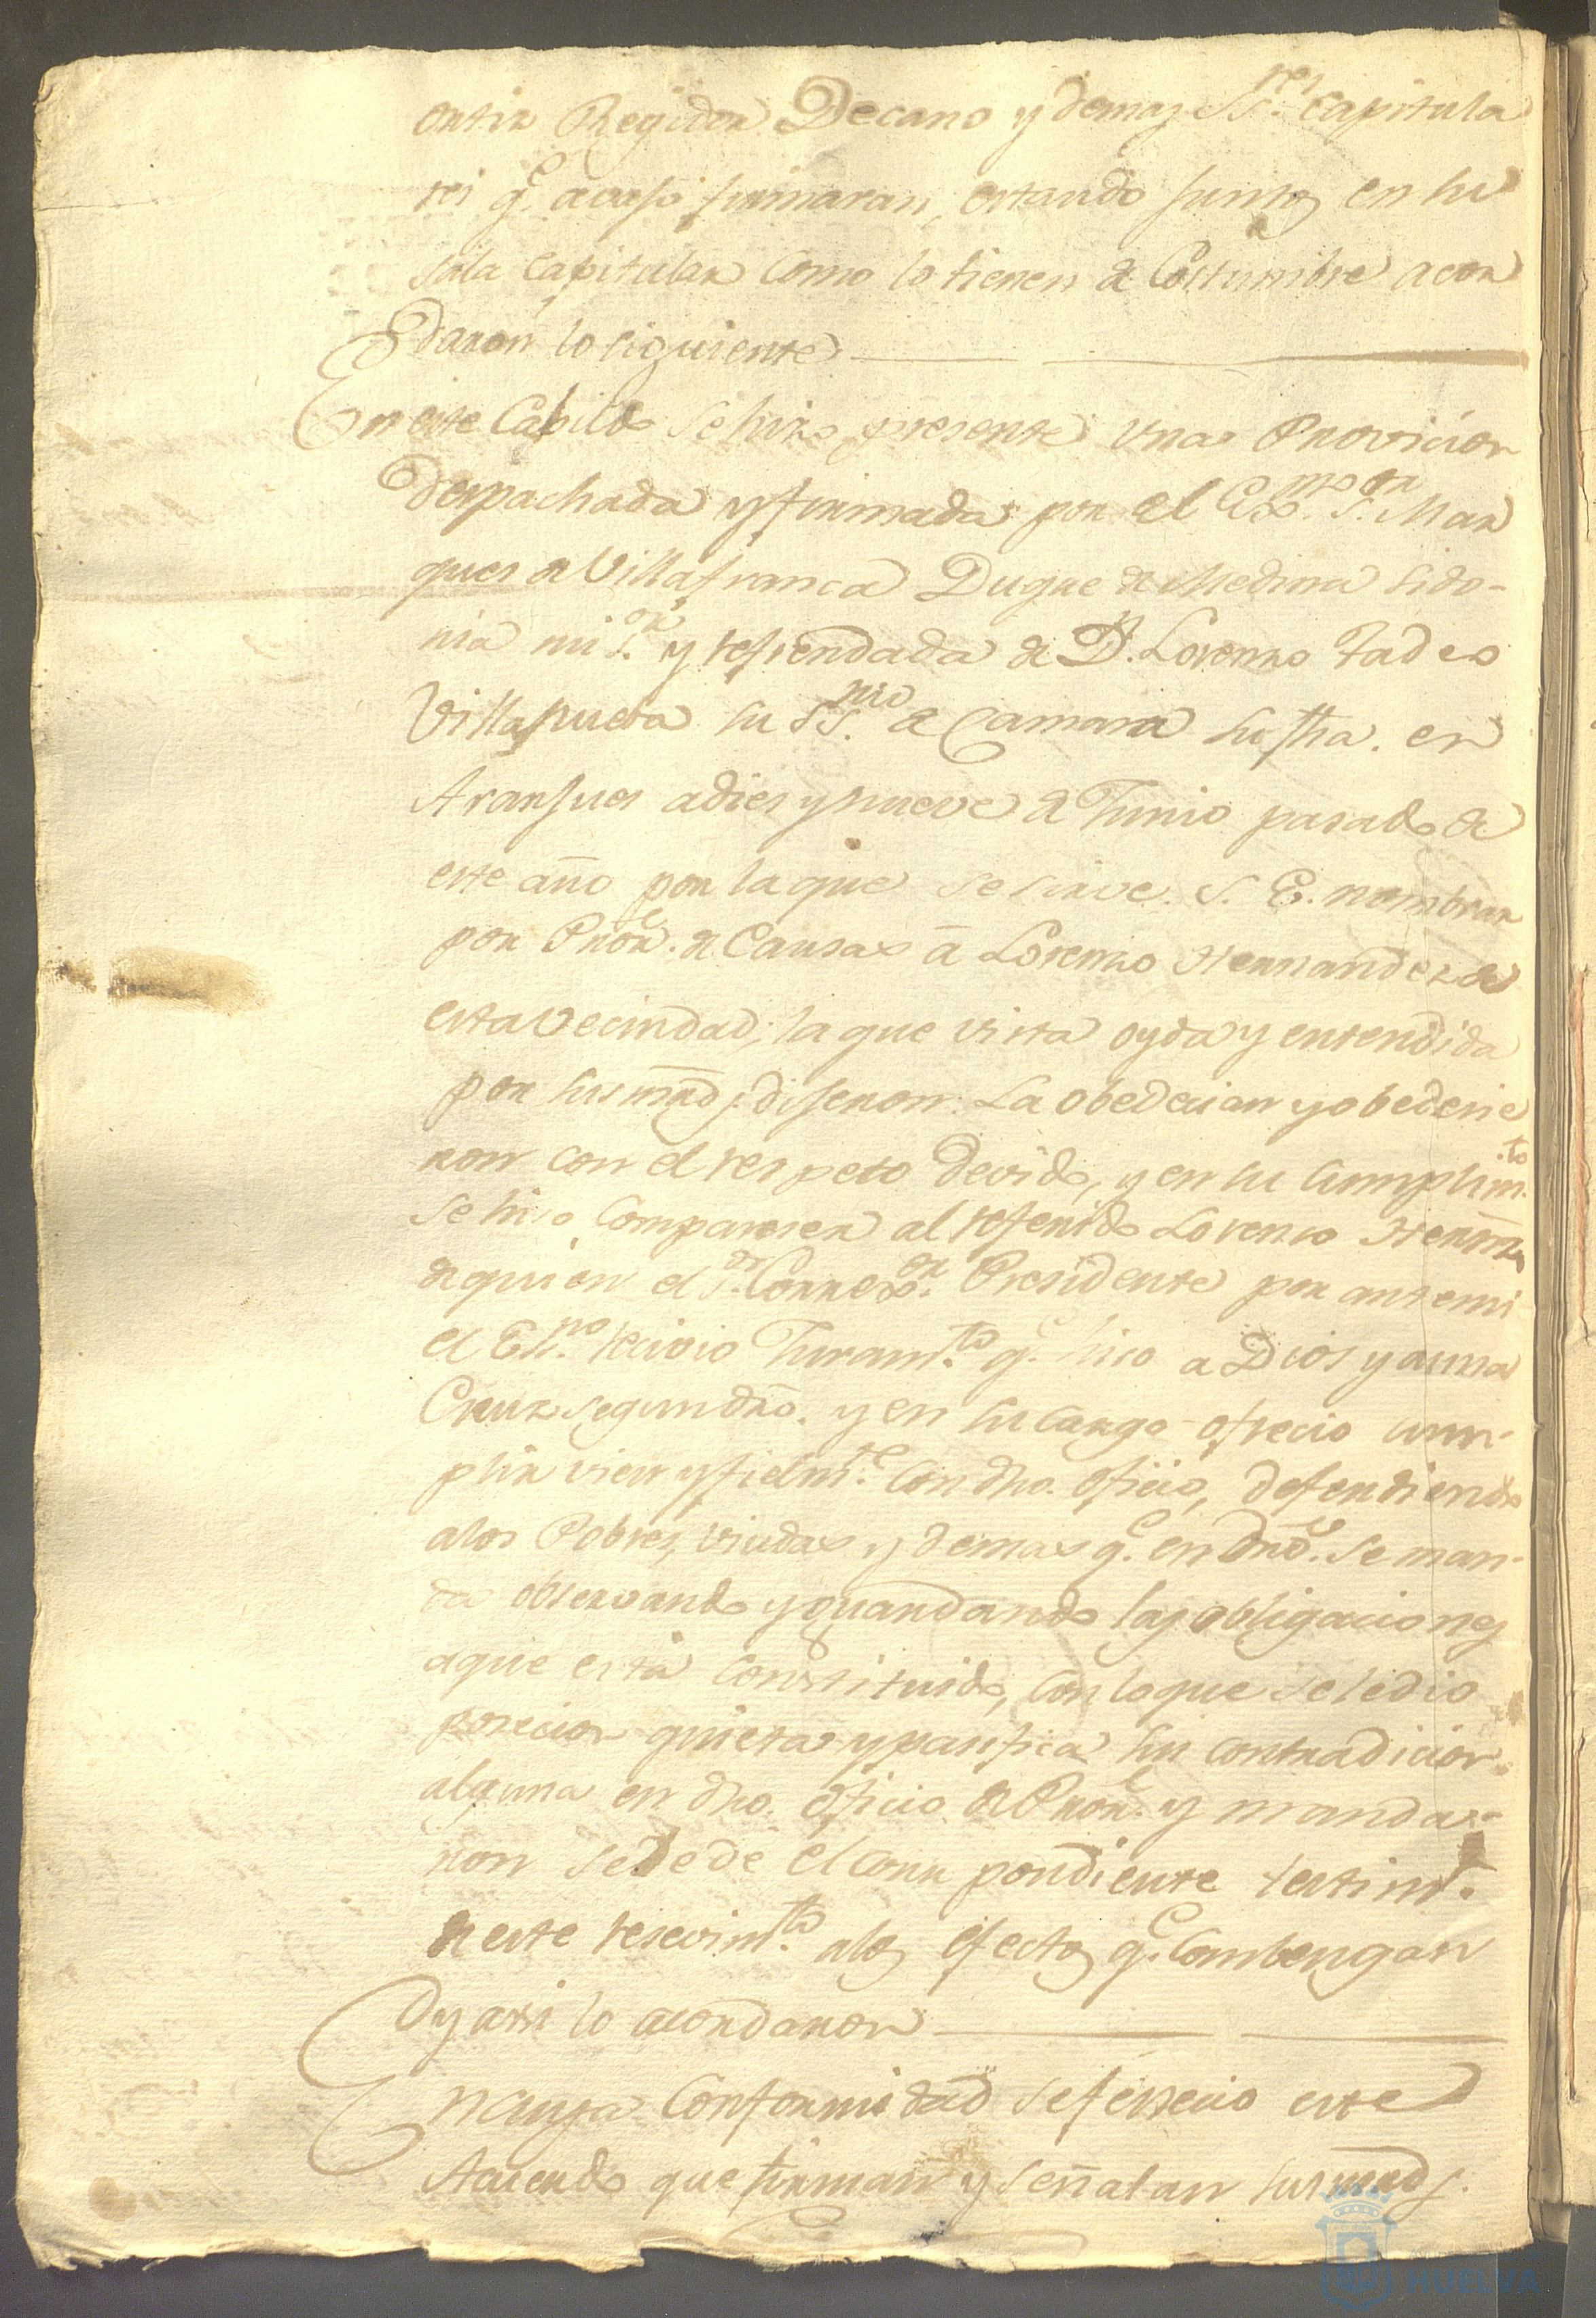 ortiz Regidor Decano y demas SS.res Capitula
res q.e avajo firmaran, estando juntos en su
sala Capitular como lo tienen de Costumbre acor
daron lo siguiente
En este Cabildo se hizo presente una Provicion
despachada y firmada por el Ex.mo S.or Mar
ques de Villafranca Duque de Medina Sido-
nia mi S.or y refrendada de D.n Lorenzo Tadeo
Villanueba su SS.rio de Camara su fha. en
Aranjues a dies y nueve de Junio pasado de
este año por la que se sirve S. E. nombrar
por Pror.e de Causas a Lorenzo Hernandez de
esta vecindad; la que vista oyda y entendida
por sus mrds. dijeron: La obedecian y obedecie
ron con el respeto devido, y en su cumplim.to
se hiso compareser al referido Lorenso Hernz
de quien el S.or Correx.or Presidente por ante mi
el Es.no recivio Juram.to q.e hiso a Dios y a una
Cruz segun dro. y en su cargo ofrecio cum-
plir vien y fielm.te con dho. oficio, defendiendo
a los Pobres, viudas y demas q.e en dro. se man-
da observando y guardando las obligaciones
a que está constituido, con lo que se le dio
posecion quieta y pasifica sin contradicion
alguna en dho. oficio de Pror.e y manda-
ron se le de el corr pondiente testim.o
de este resevim.to a los efectos q.e combengan
y assi lo acordaron
n cuya conformidad se fenecio este
Acuerdo que firman y señalan sus mrds.
HUELVA